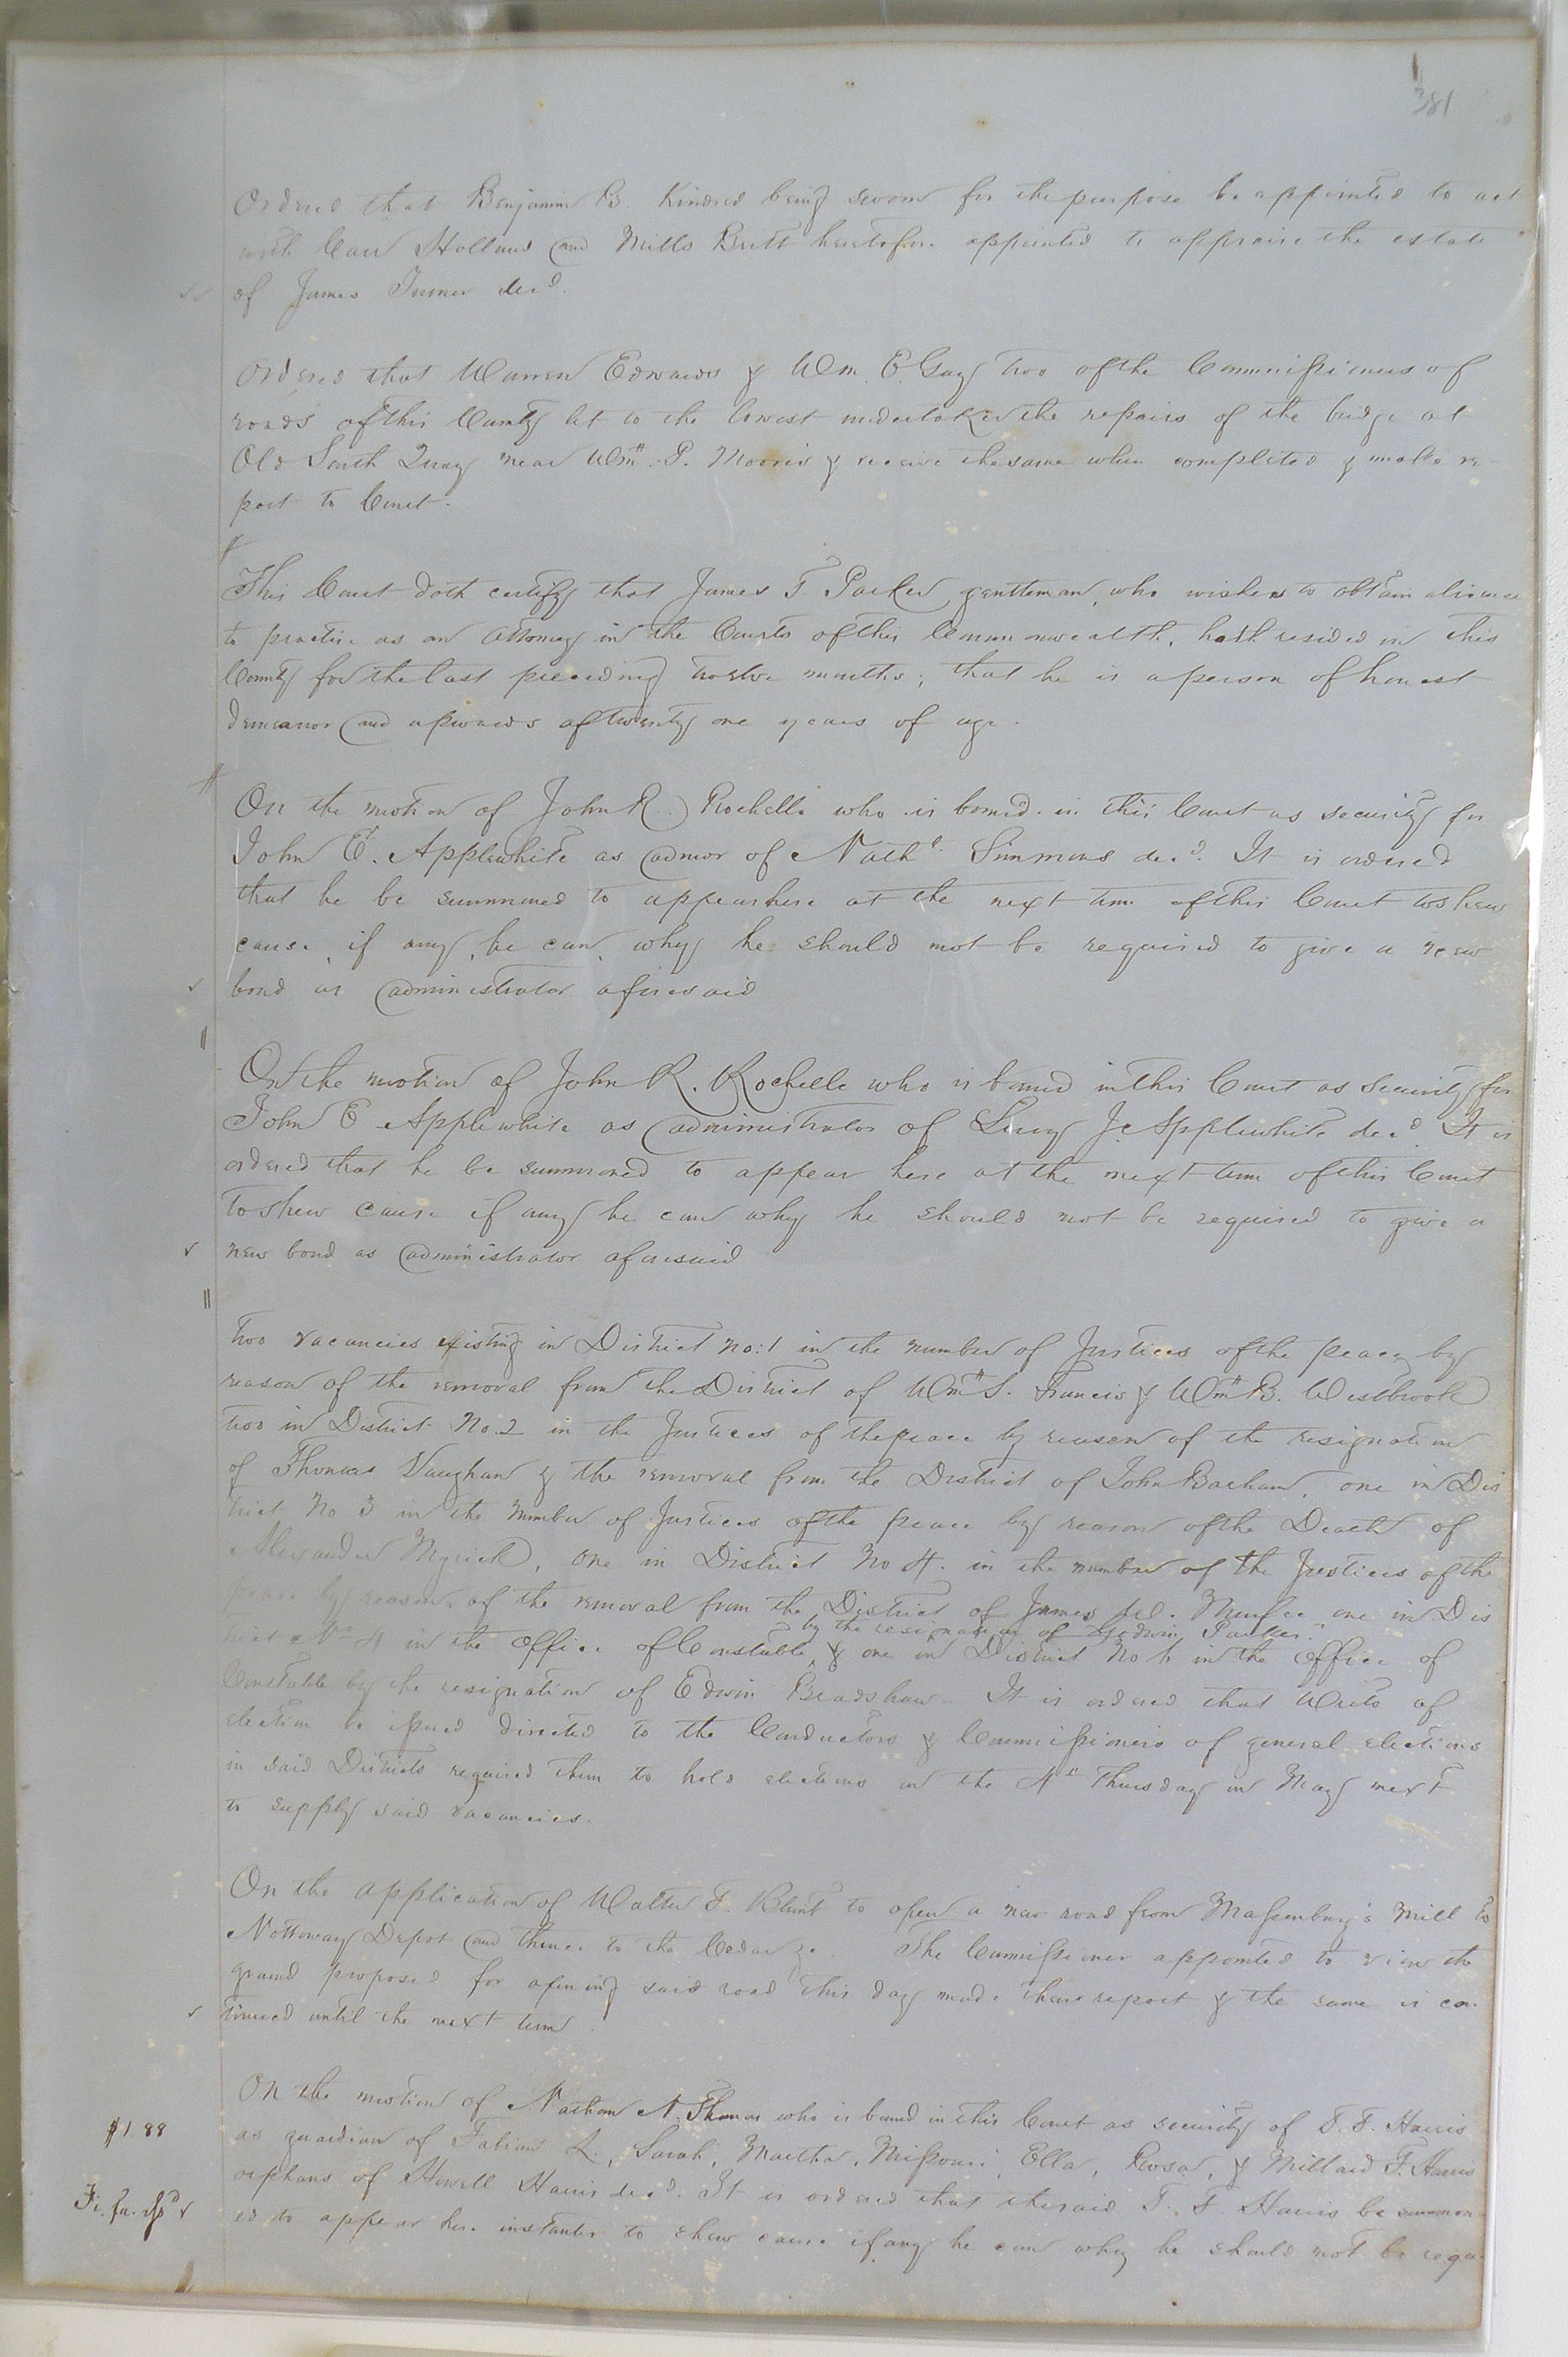 381
Ordered that Benjamin B. Kindred being sworn for the purpose be appointed to act
with Carr Holland and Mills Britt heretofore appointed to appraise the estate
of James Turner decd.
Ordered that Warren Edwards & Wm. E. Gay two of the Commissioners of
roads of this County let to the lowest undertaker the repairs of the bridge at
Old South Quay near Wm. P. Moores & receive the same when completed & make re-
port to Court.
This Court doth certify that James F. Parker gentleman, who wishes to obtain a license
to practice as an Attorney in the Courts of this Commonwealth, hath resided in this
County for the last preceeding twelve months; that he is a person of honest
demeanor and upwards of twenty one years of age.
On the motion of John R. Rochelle who is bound in this Court as security for
John E. Applewhite as admor of Nathl. Simmons decd. It is ordered
that he be summoned to appear here at the next term of this Court to shew
cause, if any, he can, why he should not be required to give a new
bond as administrator aforesaid
On the motion of John R. Rochelle who is bound in this Court as Security for
John E. Applewhite as administrator of Lucy J. Applewhite decd. It is
ordered that he be summoned to appear here at the next term of this Court
to shew cause if any he can why he should not be required to give a
new bond as administrator aforesaid
Two vacancies existing in District No: 1 in the number of Justices of the peace by
reason of the removal from the District of Wm. S. Francis & Wm. B. Westbrook
two in District No. 2 in the Justices of the peace by reason of the resignation
of Thomas Vaughan & the removal from the District of John Barham, one in Dis
trict No 3 in the number of Justices of the peace by reason of the Death of
Alexander Myrick, one in District No 4. in the number of the Justices of the
peace by reason of the removal from the District of James Murfee one in Dis
by the resignation of Parker
trict No 4 in the Office of Constable, & one in District No 6 in the Office of
Constable by the resignation of Edwin Bradshaw. It is ordered that Writs of
election be issued directed to the Conductors & Commissioners of general elections
in said Districts required them to hold elections on the 4th Thursday in May next
to supply said vacancies.
On the application of Walter F. Blunt to open a new road from Massenburg's Mill to
Nottoway Depot and thence to the &c. The Commissioner appointed to view the
ground proposed for opening said road this day made their report & the same is con
tinued until the next term
On the motion of Nathan N. Thomas who is bound in this Court as security of T. F. Harris
$1.88
as guardian of Fabian L., Sarah, Martha, Missouri, Ella, Rosa, & Millard F. Harris
orphans of Howell Harris decd. It is ordered that the said T. F. Harris be summon
Fi. fa. isd
ed to appear here instanter to shew cause if any he can why he should not be requi